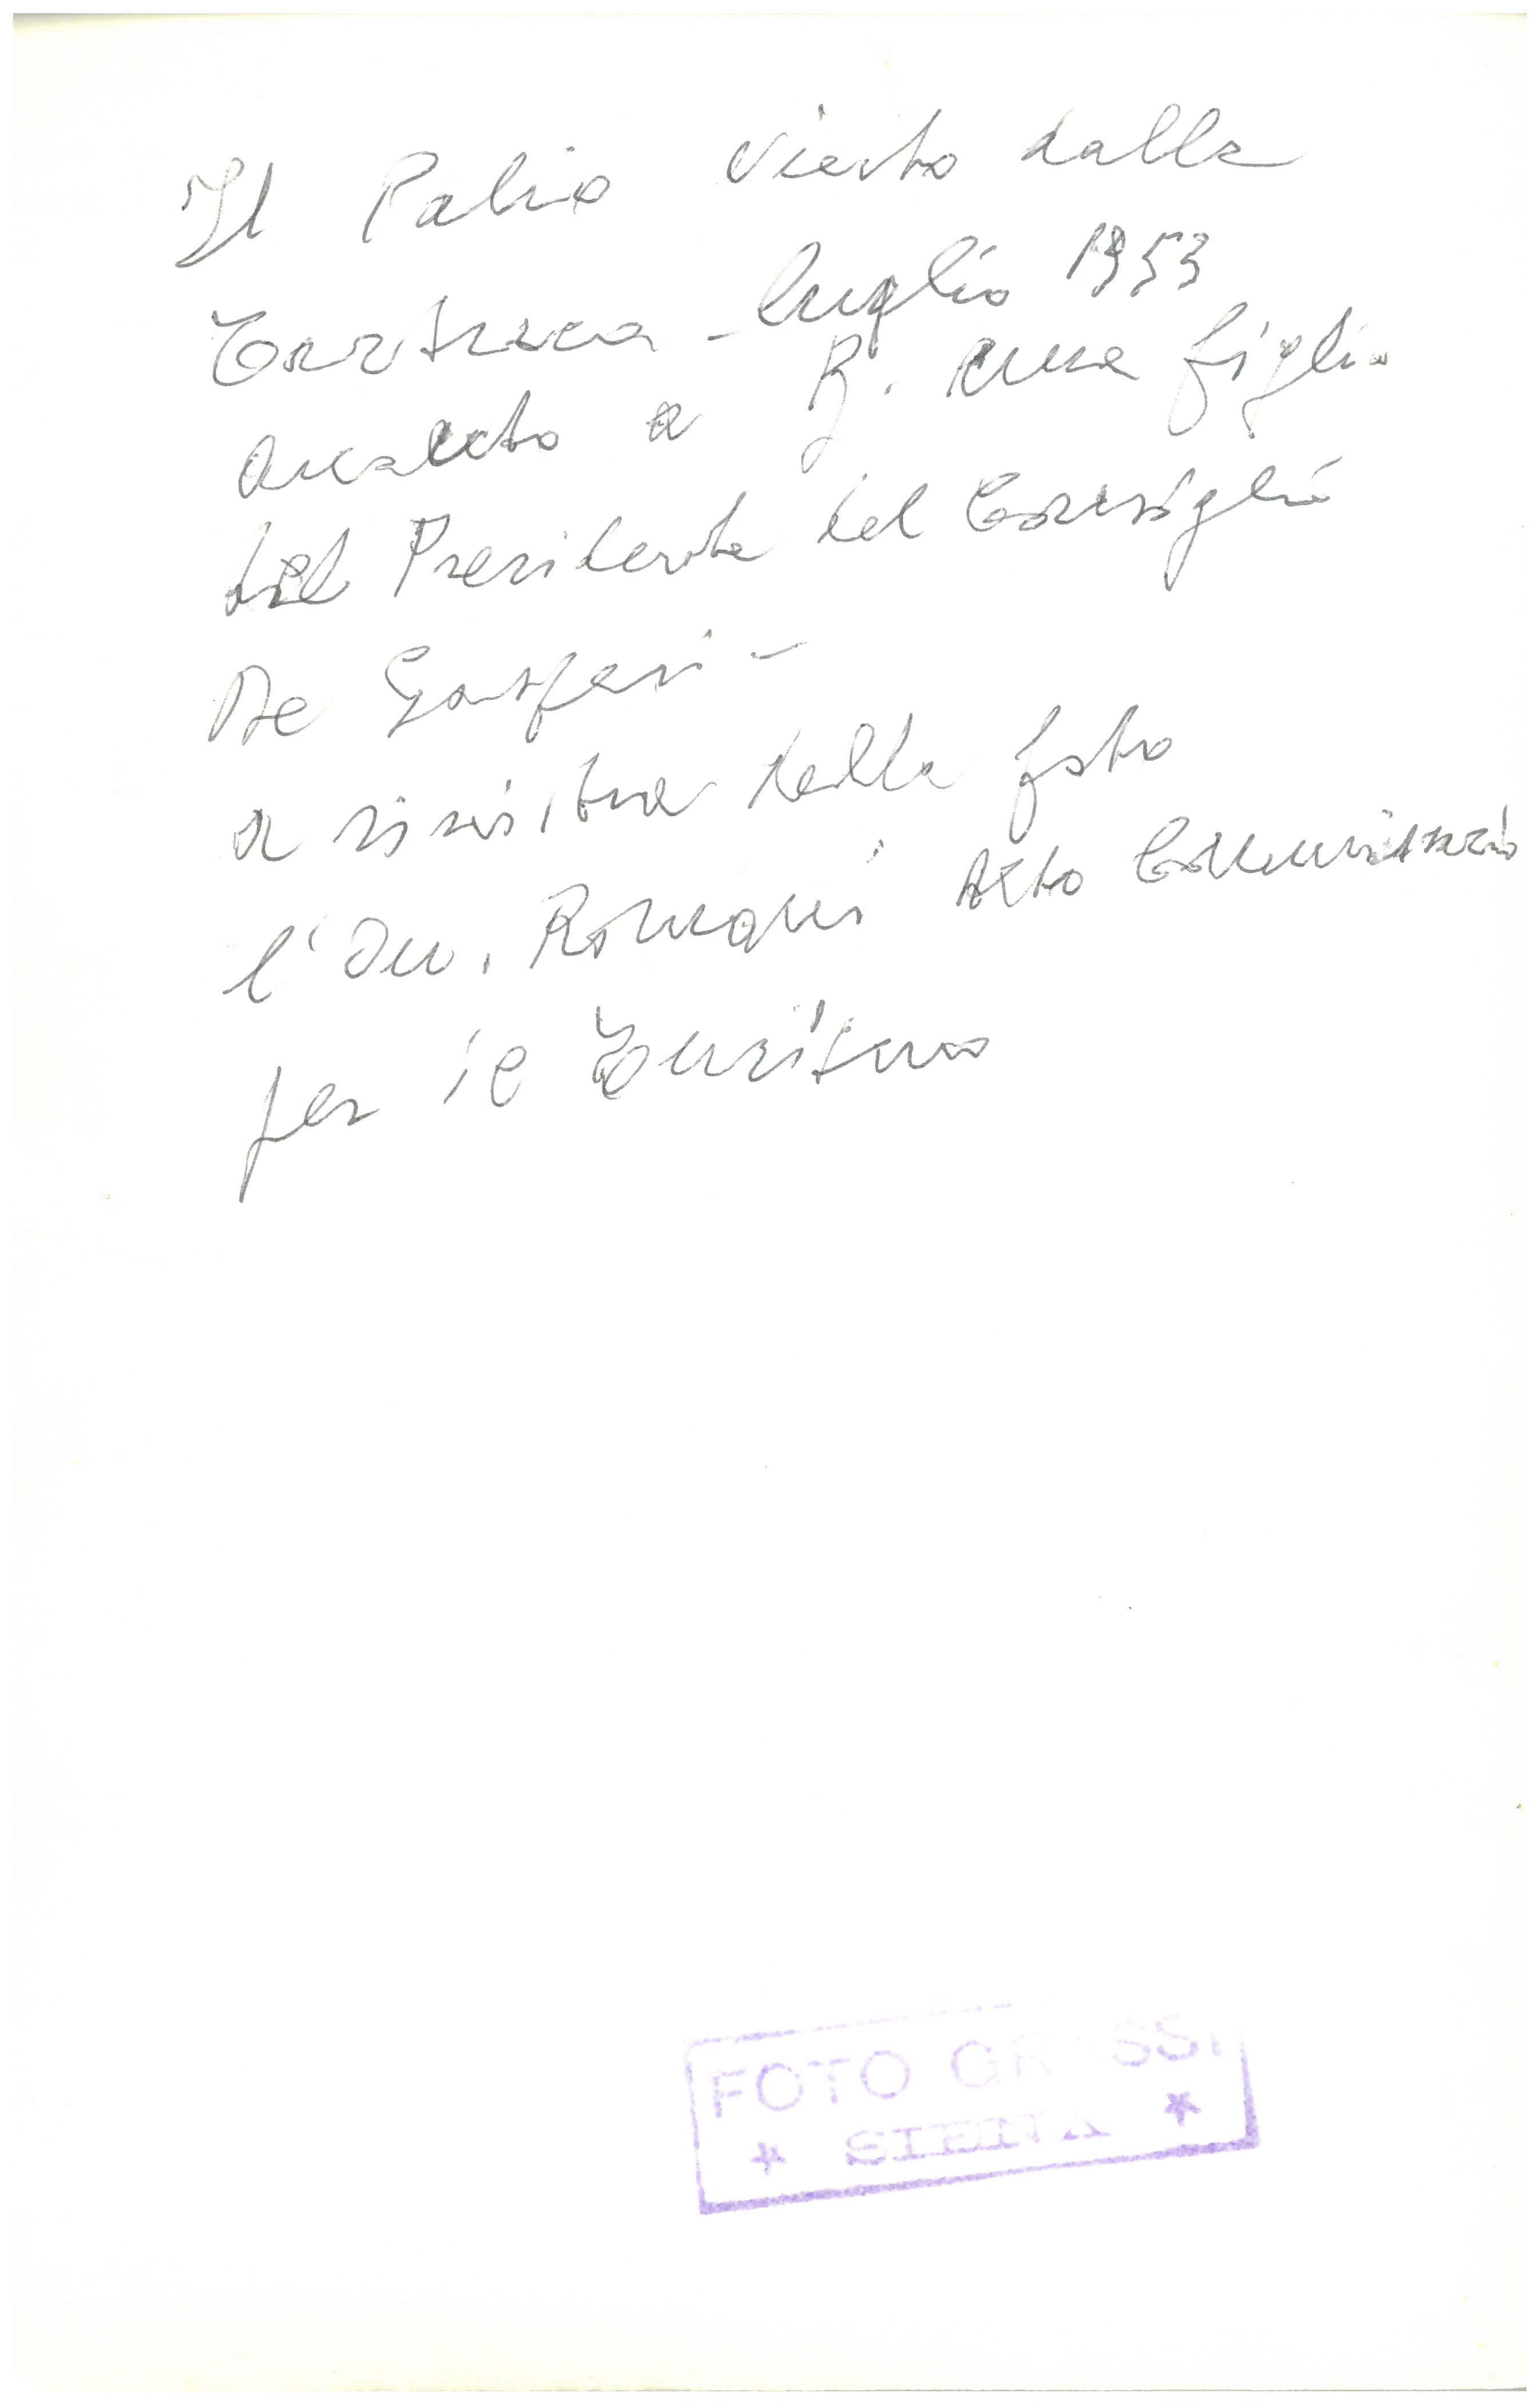 Il Palio vinto dalla
Tartuca - luglio 1953
a una figlia
del Presidente del Consiglio
De Gasperi -
a sinistra della foto
l'On. Romani Alto Commissario
per il Turismo
FOTO GRASSI
* SIENA *